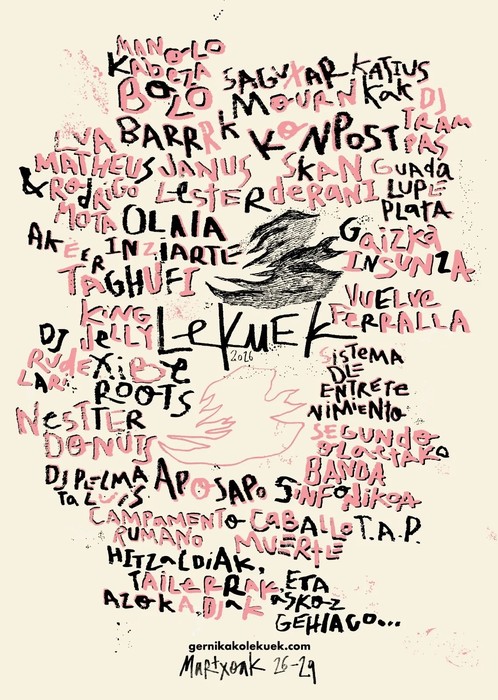 MANOLO
KABEZA
BOLO
SAGUXAR
KATIUS
KAK
MOURN
DJ
TRAM
PAS
BARRRK
KONPOST
LVA
MATHEUS
& RODRIGO
MOTA
JANUS
LESTER
SKAN
DERANI
GUADA
LUPE
PLATA
OLAIA
INZIARTE
AKEER
TAGHUFI
GAIZKA
INSUNZA
KING
JELLY
VUELVE
FERRALLA
LEKUEK
2026
DJ
RUDE
LARI
XIBE
ROOTS
SISTEMA
DE
ENTRETE
NIMIENTO
NESTTER
DONUTS
SEGUNDO
OLAETAKO
BANDA
SINFONIKOA
DJ PELMA
TA LUIS
APOSAPO
CAMPAMENTO
RUMANO
CABALLO
MUERTE
T.A.P.
HITZALDIAK,
TAILERRAK,
AZOKA, DJAK
ETA
ASKOZ
GEHIAGO...
gernikakolekuek.com
Martxoak 26-29